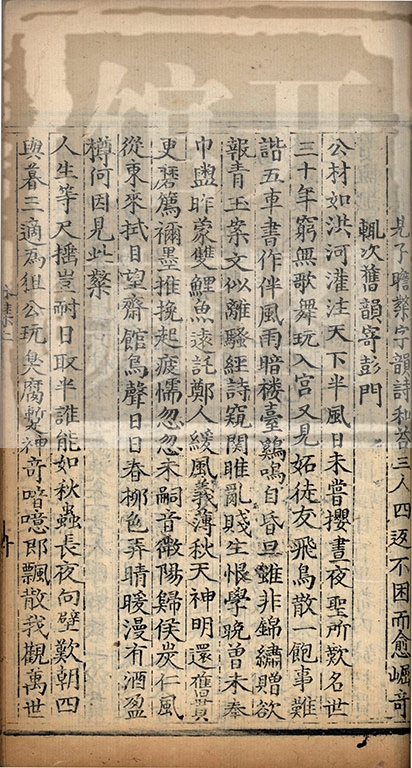 見子瞻粲字韻詩和荅三人四返不困而愈崛竒
輒次舊韻寄彭門
公材如洪河灌注天下半風日未嘗攖晝夜聖所歎名世
三十年窮無歌舞玩入宮又見妬徒友飛鳥散一飽事難
諧五車書作伴風雨暗樓臺鷄鳴自昏旦雖非錦繡贈欲
報青玉案文似離騷經詩窺關雎亂賤生恨學晚曾未奉
巾盥昨蒙雙鯉魚遠託鄭人緩風義薄秋天神明還舊貫
更磨薦禰墨推挽起疲懦忽忽未嗣音微陽歸侯炭仁風
從東來拭目望齋館鳥聲日日春柳色弄晴暖漫有酒盈
樽何因見此粲
人生等尺捶豈耐日取半誰能如秋蟲長夜向壁歎朝四
與暮三適為組公玩臭腐暫神竒喑噫即飄散我觀萬世